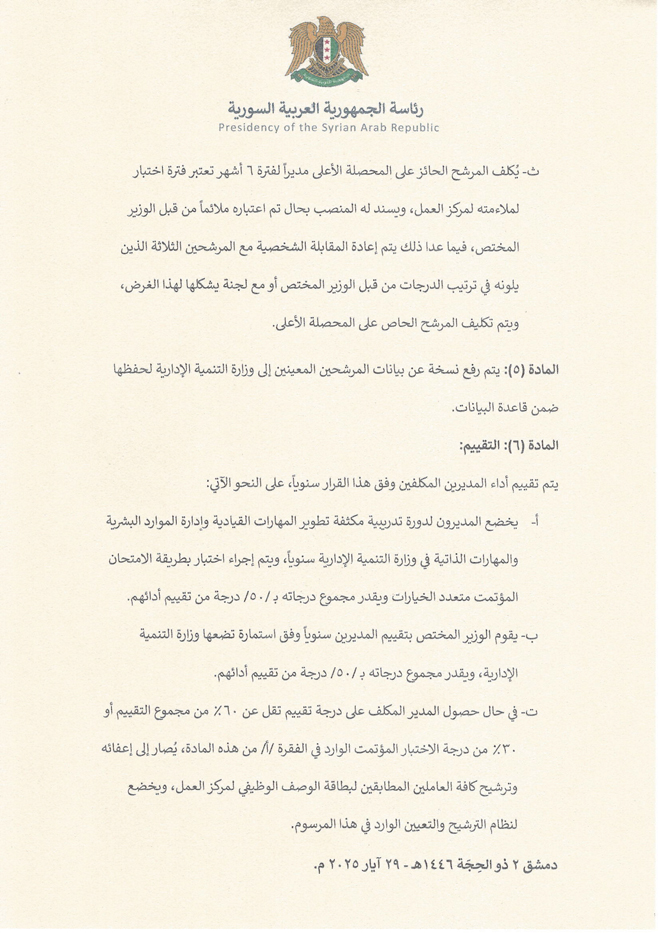 رئاسة الجمهورية العربية السورية
Presidency of the Syrian Arab Republic
ث- يُكلف المرشح الحائز على المحصلة الأعلى مديراً لفترة ٦ أشهر تعتبر فترة اختبار
لملاءمته لمركز العمل، ويسند له المنصب بحال تم اعتباره ملائماً من قبل الوزير
المختص، فيما عدا ذلك يتم إعادة المقابلة الشخصية مع المرشحين الثلاثة الذين
يلونه في ترتيب الدرجات من قبل الوزير المختص أو مع لجنة يشكلها لهذا الغرض،
ويتم تكليف المرشح الحاص على المحصلة الأعلى.
المادة (٥): يتم رفع نسخة عن بيانات المرشحين المعينين إلى وزارة التنمية الإدارية لحفظها
ضمن قاعدة البيانات.
المادة (٦): التقييم:
يتم تقييم أداء المديرين المكلفين وفق هذا القرار سنوياً، على النحو الآتي:
أ- يخضع المديرون لدورة تدريبية مكثفة تطوير المهارات القيادية وإدارة الموارد البشرية
والمهارات الذاتية في وزارة التنمية الإدارية سنوياً، ويتم إجراء اختبار بطريقة الامتحان
المؤتمت متعدد الخيارات ويقدر مجموع درجاته بـ /٥٠/ درجة من تقييم أدائهم.
ب- يقوم الوزير المختص بتقييم المديرين سنوياً وفق استمارة تضعها وزارة التنمية
الإدارية، ويقدر مجموع درجاته بـ /٥٠/ درجة من تقييم أدائهم.
ت- في حال حصول المدير المكلف على درجة تقييم تقل عن ٦٠٪ من مجموع التقييم أو
٣٠٪ من درجة الاختبار المؤتمت الوارد في الفقرة /أ/ من هذه المادة، يُصار إلى إعفائه
وترشيح كافة العاملين المطابقين لبطاقة الوصف الوظيفي لمركز العمل، ويخضع
لنظام الترشيح والتعيين الوارد في هذا المرسوم.
دمشق ٢ ذو الحِجَة ١٤٤٦هـ - ٢٩ آيار ٢٠٢٥ م.